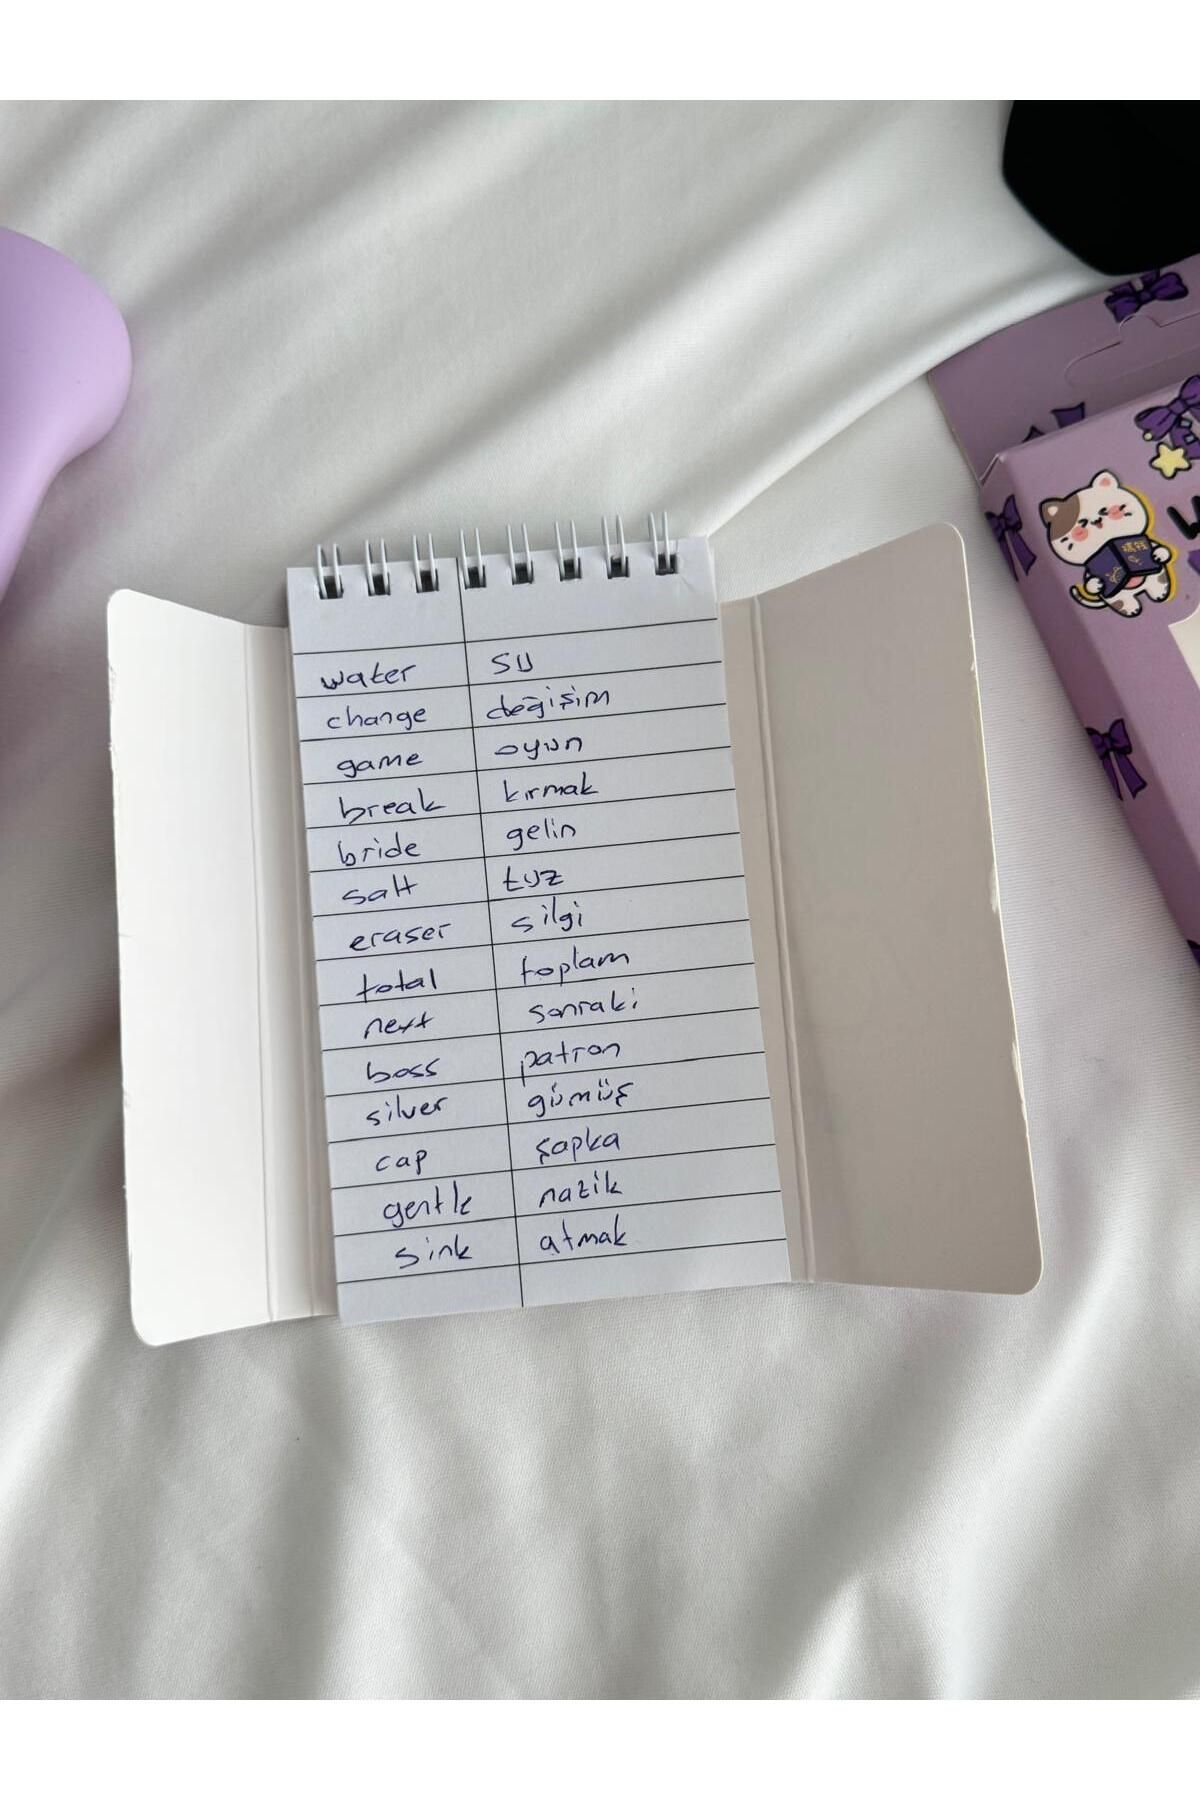 water su
change değişim
game oyun
break kırmak
bride gelin
salt tuz
eraser silgi
total toplam
next sonraki
boss patron
silver gümüş
cap şapka
gentle nazik
sink atmak